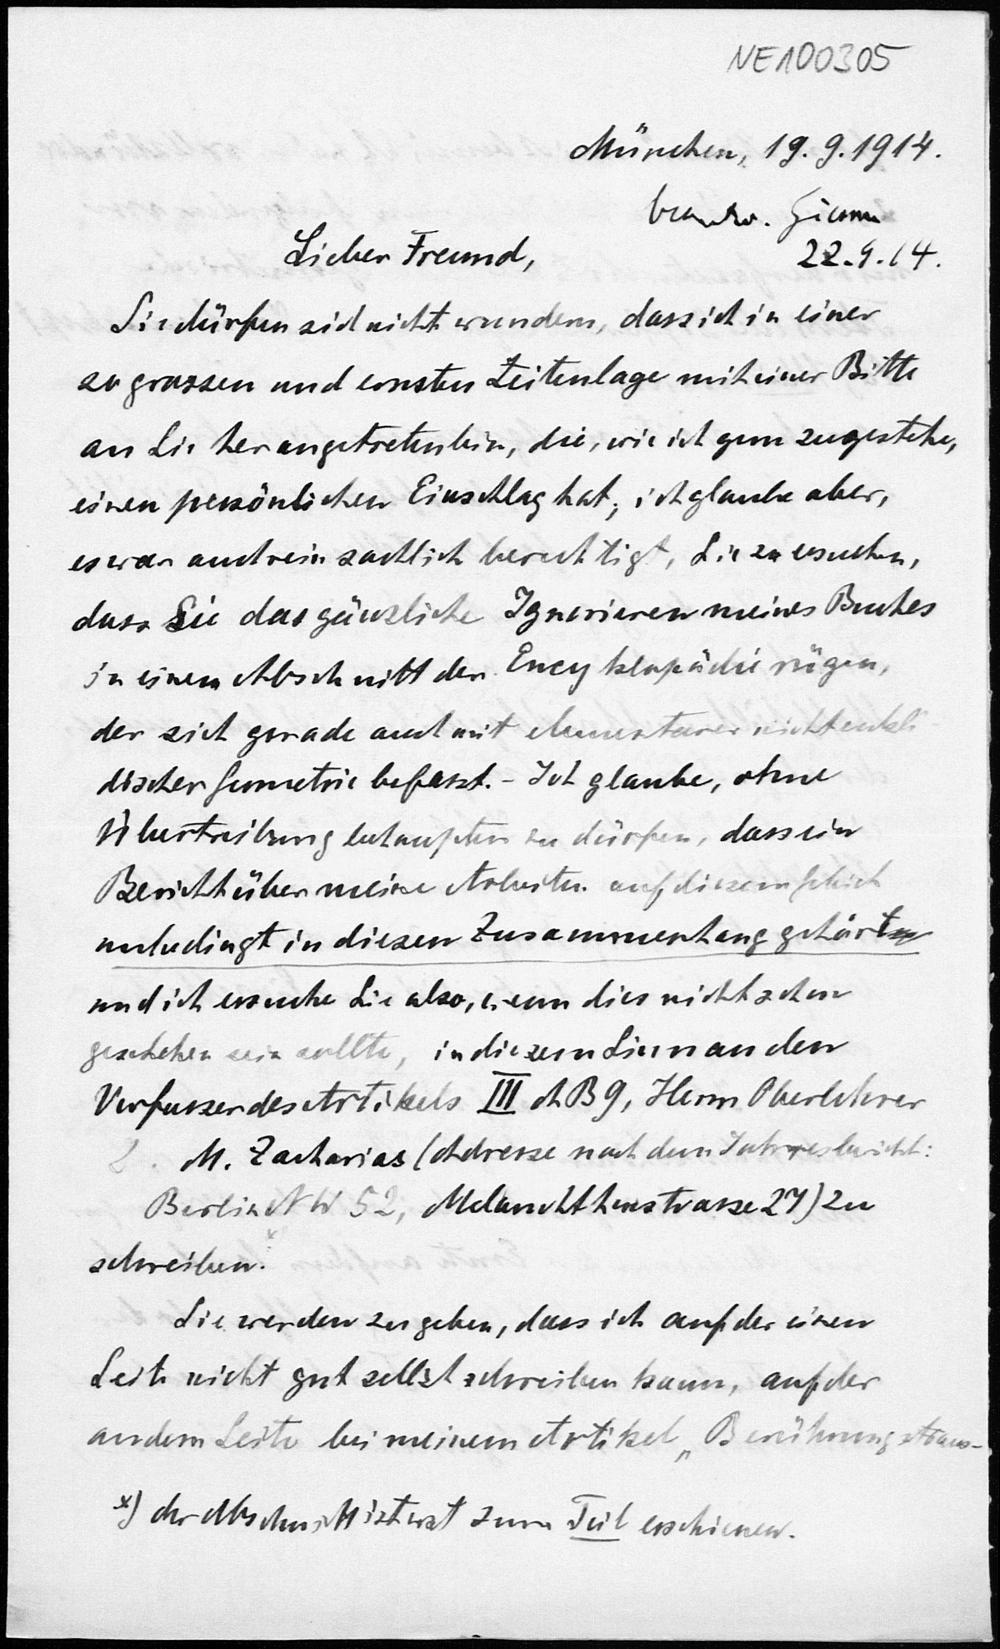 NE100305
München, 19.9.1914.
beantw.
22.9.14.
Lieber Freund,
Sie dürfen sich nicht wundern, dass ich in einer
so grossen und ernsten Zeitenlage mit einer Bitte
an Sie herangetreten bin, die, wie ich gern zugestehe,
einen persönlichen Einschlag hat; ich glaube aber,
es war auch rein sachlich berechtigt, Sie zu ersuchen,
dass Sie das gänzliche Ignorieren meines Buches
in einem Abschnitt der Encyklopädie rügen,
der sich gerade auch mit elementarer nichteukli
discher Geometrie befasst. – Ich glaube, ohne
Übertreibung behaupten zu dürfen, dass ein
Bericht über meine Arbeiten auf diesem Gebiet
unbedingt in diesen Zusammenhang gehört
und ich ersuche Sie also, wenn dies nicht schon
geschehen sein sollte, in diesem Sinn an den
Verfasser des Artikels III AB9, Herrn Oberlehrer
M. Zacharias (Adresse nach dem Jahresbericht:
Berlin NW 52, Melanchthonstrasse 27) zu
schreiben.*
Sie werden zugeben, dass ich auf der einen
Seite nicht gut selbst schreiben kann, auf der
andern Seite bei meinem Artikel „Berührungstrans-
*) der Abschnitt ist erst zum Teil erschienen.